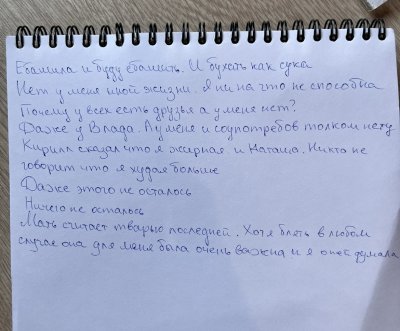 Ебашила и буду ебашить. И бухать как сука
Нет у меня иной жизни. Я ни на что не способна
Почему у всех есть друзья а у меня нет?
Даже у Влада. А у меня и соупотребов толком нету
Кирилл сказал что я жирная и Наташа. Никто не
говорит что я худая больше
Даже этого не осталось
Ничего не осталось
Мать считает тварью последней. Хотя блять в любом
случае она для меня была очень важна и я о ней думала